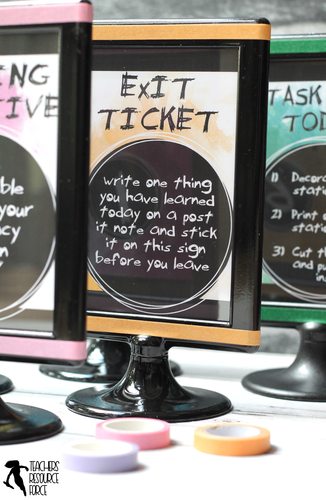 ING
TIVE
ble
your
cy
EXIT
TICKET
write one thing
you have learned
today on a post
it note and stick
it on this sign
before you leave
TASK
TOD
1) Decora
stati
2) Print o
stati
3) Cut th
and pu
TEACHERS
RESOURCE
FORCE